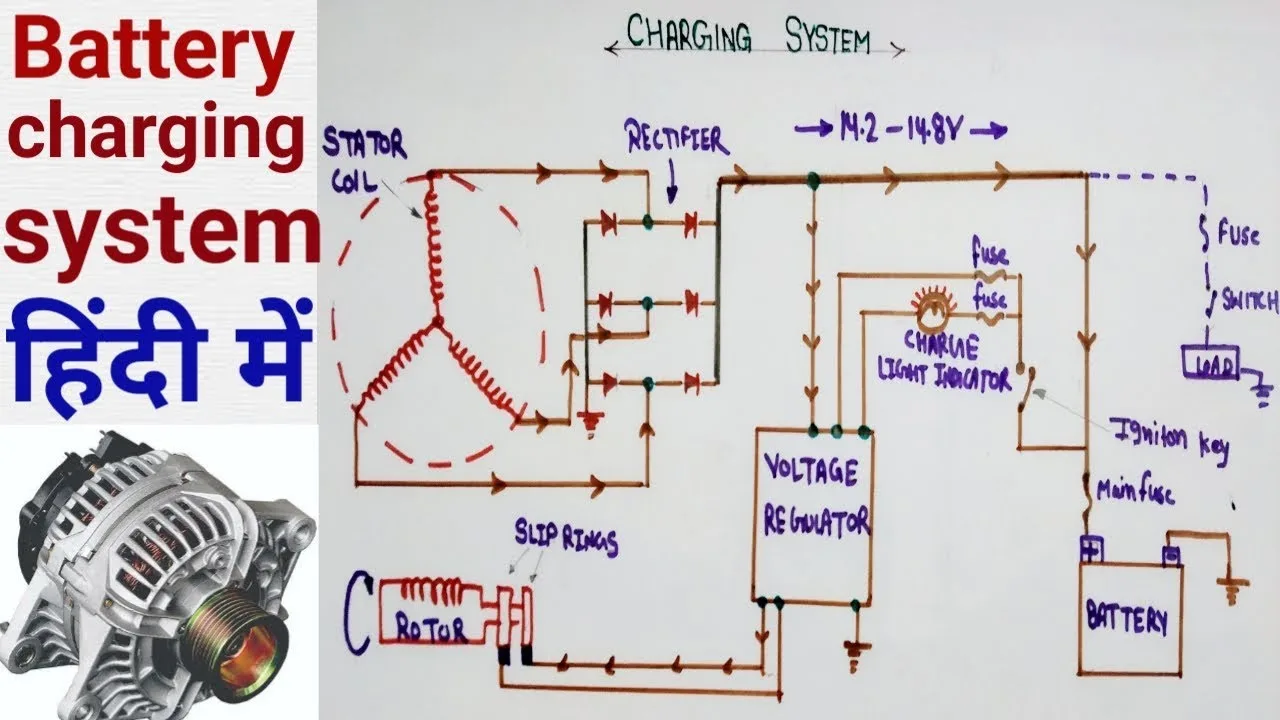 Battery
charging
system
हिंदी में
CHARGING SYSTEM
STATOR
COIL
RECTIFIER
14.2 - 14.8V
fuse
fuse
CHARGE
LIGHT INDICATOR
FUSE
SWITCH
LOAD
Igniton key
Main fuse
VOLTAGE
REGULATOR
SLIP RINGS
ROTOR
+
-
BATTERY